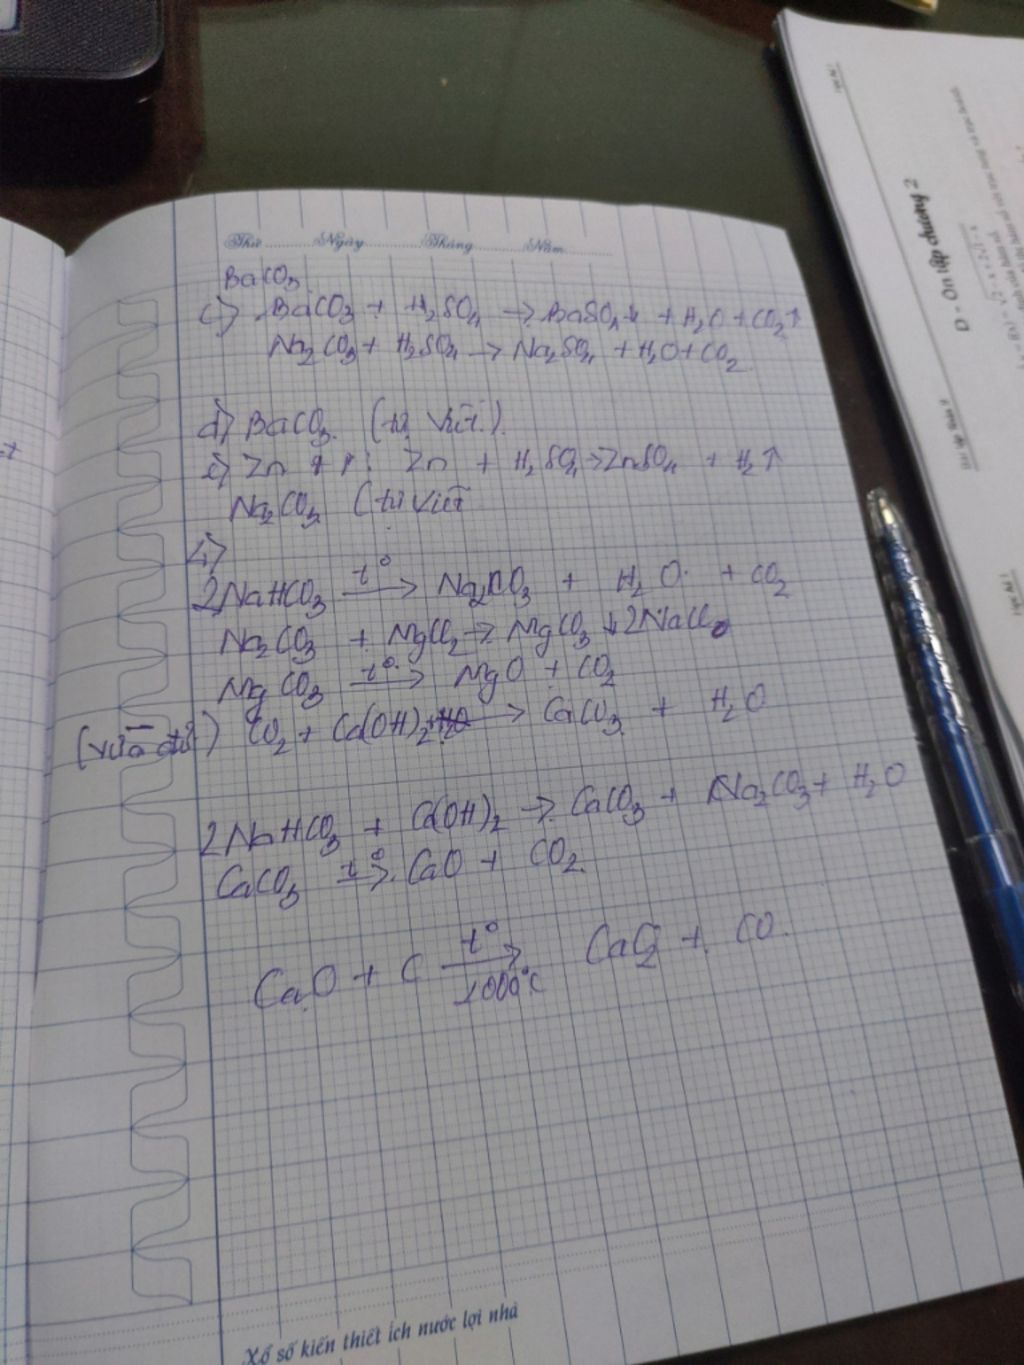 Thứ Ngày Tháng Năm
BaCO3
c) BaCO3 + H2SO4 → BaSO4↓ + H2O + CO2↑
Na2CO3 + H2SO4 → Na2SO4 + H2O + CO2
d) BaCO3 (tự viết).
e) Zn Zn + H2SO4 → ZnSO4 + H2↑
Na2CO3 (tự viết
4)
2NaHCO3 t° → Na2CO3 + H2O + CO2
Na2CO3 + MgCl2 → MgCO3 + 2NaCl
MgCO3 t° → MgO + CO2
(vừa đủ) CO2 + Ca(OH)2 → CaCO3 + H2O
2NaHCO3 + Ca(OH)2 → CaCO3 + Na2CO3 + H2O
CaCO3 t° → CaO + CO2
CaO + C t° → CaC2 + CO.
1000°C
Xổ số kiến thiết ích nước lợi nhà
D - Ôn tập chương 2